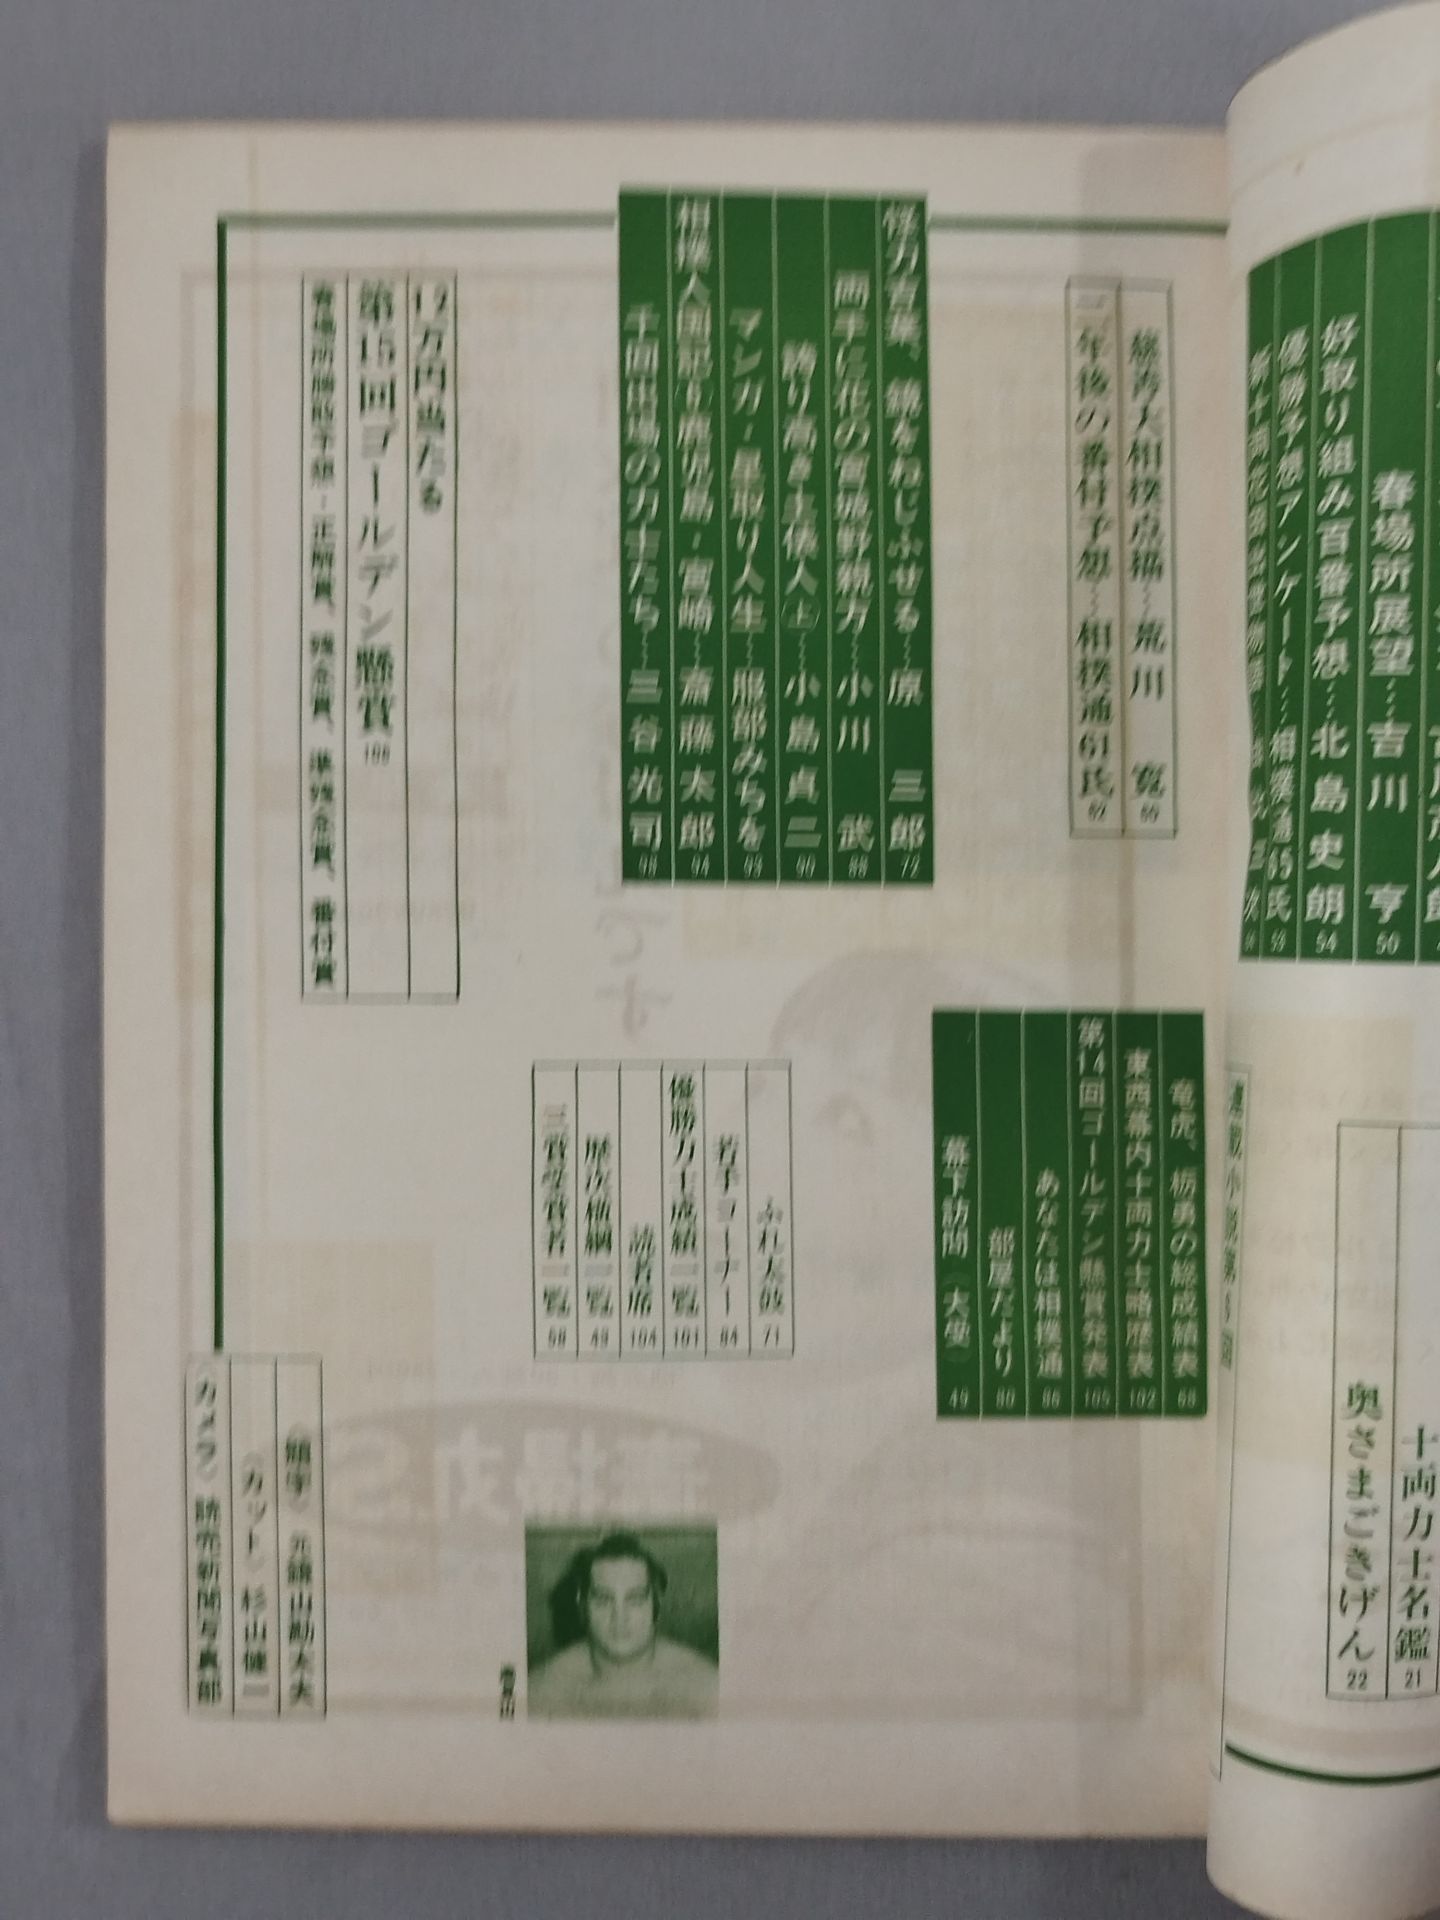 春場所展望…吉川 亨 50
好取り組み百番予想…北島史朗 54
優勝予想アンケート…相撲通65氏 53
十両力士名鑑 21
奥さまごきげん 22
荒川 寛
二年後の番付予想…相撲通61氏 62
竜虎、栃勇の総成績表 68
東西幕内十両力士略歴表 102
第14回ゴールデン懸賞発表 105
あなたは相撲通 86
部屋だより 80
幕下訪問(大受) 49
怪力吉葉、鏡をねじふせる…原 三郎 72
両手に花の宮城野親方…小川 武 88
誇り高き土俵人(上)…小島貞二 90
マンガ・星取り人生…服部みちを 93
鹿児島・宮崎…斎藤太郎 94
千両田場の力士たち…三谷光司 98
ふれ太鼓 71
若手コーナー 84
優勝力士成績一覧 101
読者席 104
歴次横綱一覧 49
三賞受賞者一覧 58
12万円当たる
第15回ゴールデン懸賞 106
〈カット〉杉山健一
〈カメラ〉読売新聞写真部